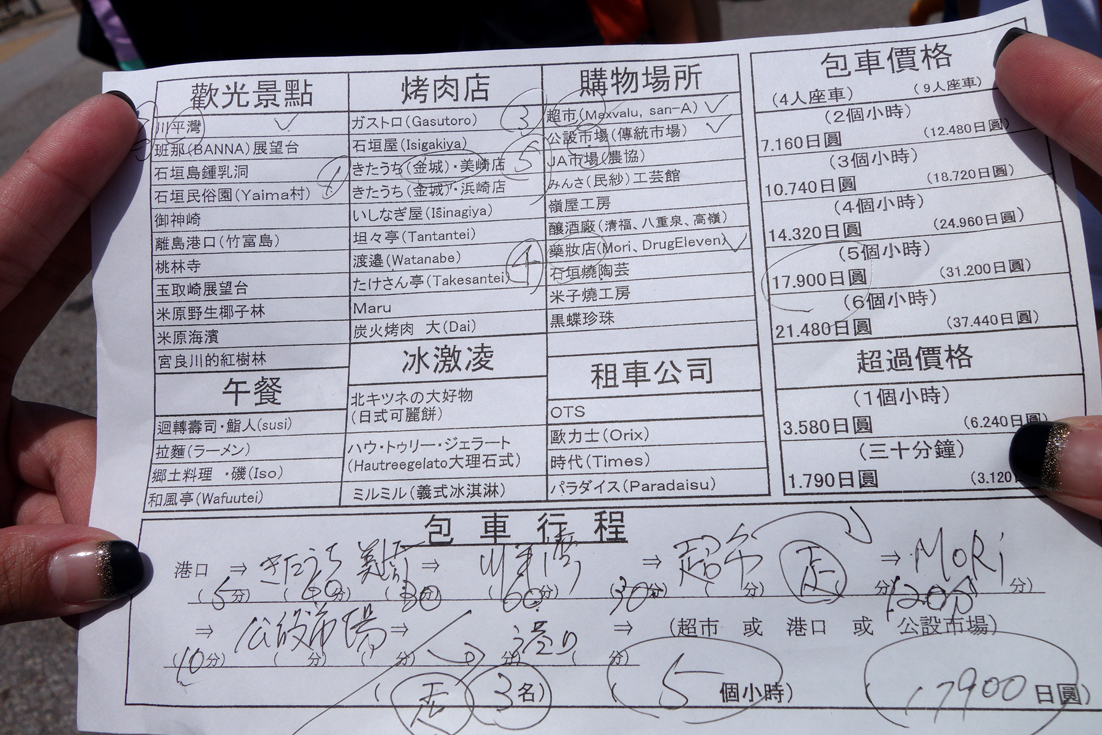 歡光景點
川平灣
班那(BANNA)展望台
石垣島鍾乳洞
石垣民俗園(Yaima村)
御神崎
離島港口(竹富島)
桃林寺
玉取崎展望台
米原野生椰子林
米原海濱
宮良川的紅樹林
午餐
迴轉壽司・鮨人(susi)
拉麵(ラーメン)
郷土料理 ・磯(Iso)
和風亭(Wafuutei)
烤肉店
ガストロ(Gasutoro)
石垣屋(Isigakiya)
きたうち(金城)・美崎店
きたうち(金城)・浜崎店
いしなぎ屋(Isinagiya)
坦々亭(Tantantei)
渡邉(Watanabe)
たけさん亭(Takesantei)
Maru
炭火烤肉 大(Dai)
冰激凌
北キツネの大好物
(日式可麗餅)
ハウ・トゥリー・ジェラート
(Hautreegelato大理石式)
ミルミル(義式冰淇淋)
購物場所
3 超市(Maxvalu, san-A)
公設市場(傳統市場)
5 JA市場(農協)
みんさ(民紗)工芸館
嶺屋工房
釀酒廠(清福、八重泉、高嶺)
4 藥妝店(Mori、DrugEleven)
石垣燒陶芸
米子燒工房
黒蝶珍珠
租車公司
OTS
歐力士(Orix)
時代(Times)
パラダイス(Paradaisu)
包車價格
(4人座車) (9人座車)
(2個小時)
7.160日圓 (12.480日圓)
(3個小時)
10.740日圓 (18.720日圓)
(4個小時)
14.320日圓 (24.960日圓)
(5個小時)
17.900日圓 (31.200日圓)
(6個小時)
21.480日圓 (37.440日圓)
超過價格
(1個小時)
3.580日圓 (6.240日圓)
(三十分鐘)
1.790日圓 (3.120
包車行程
港口 ⇒ きたうち 美崎 ⇒ 川平湾 ⇒ 超市 ⇒ MORi
(5分) (60分) (30分) (60分) 30分) (分) (分) 120分 分)
⇒ 公設市場 ⇒ 港口 ⇒ (超市 或 港口 或 公設市場)
(10分) (分) (分) (分) (分)
(3名) (5個小時) (17900日圓)